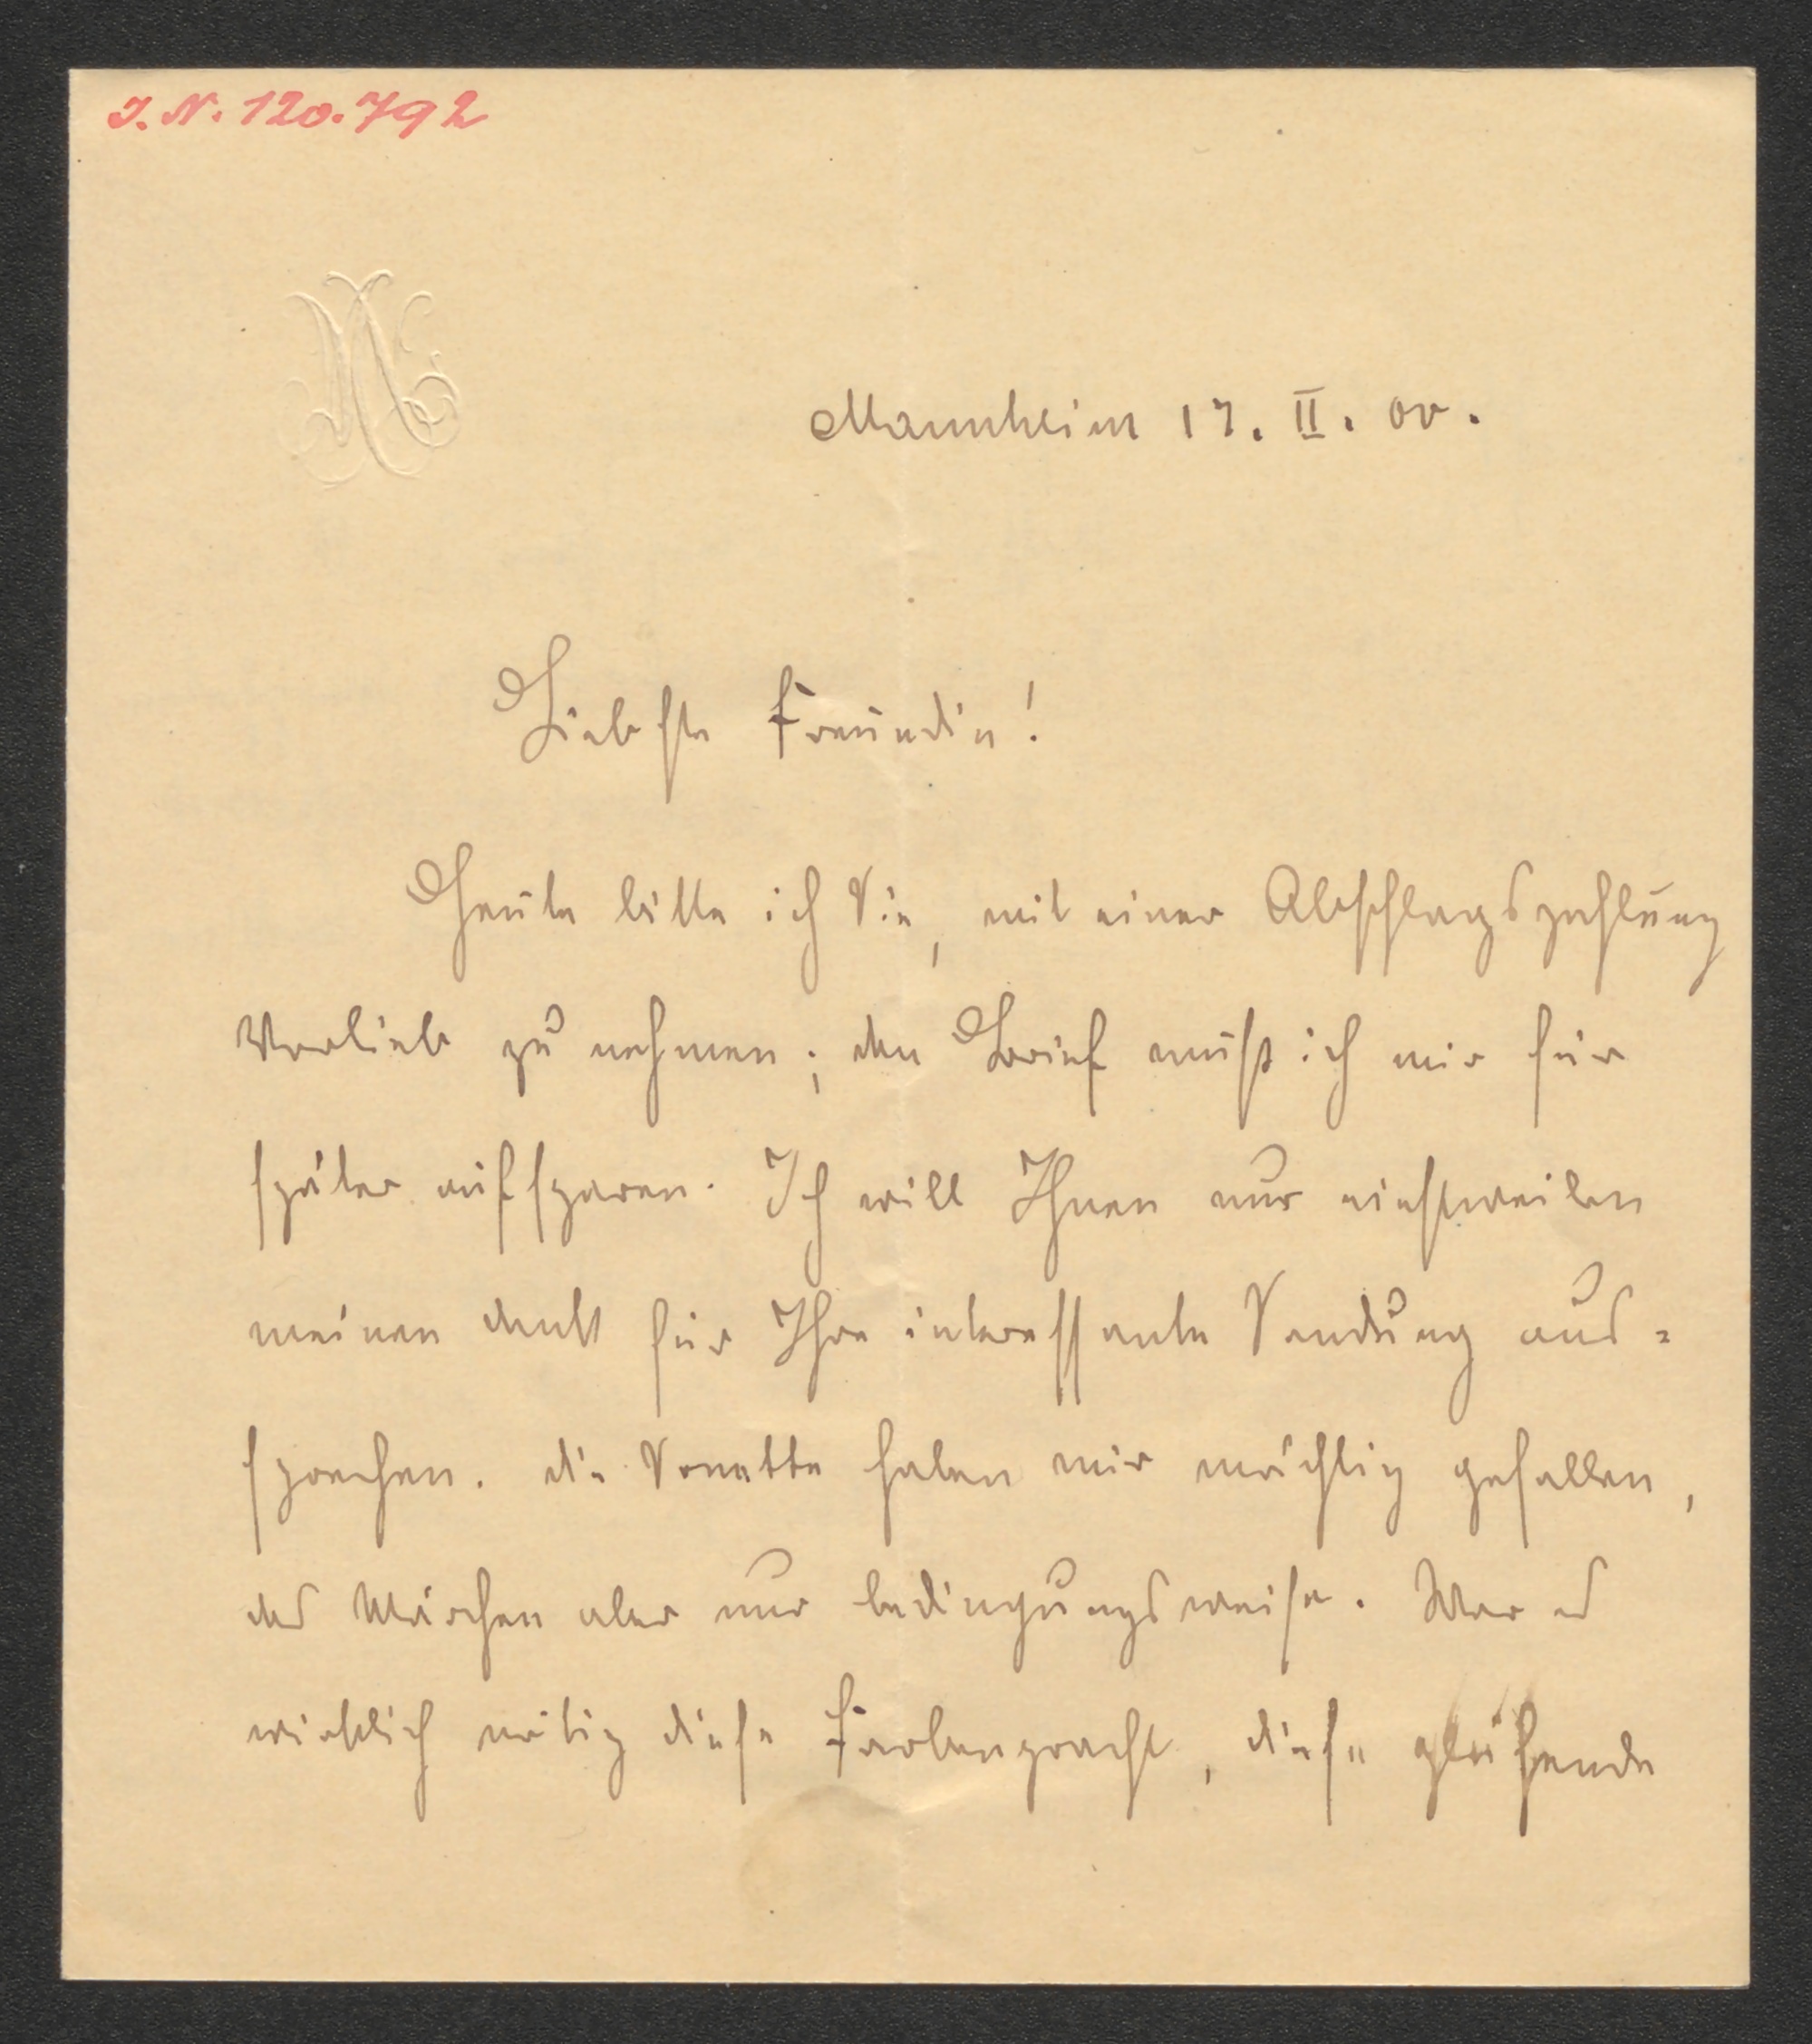 J. N. 120.792
Mannheim 17. II. 00.
Liebste Freundin!
Heute bitte ich Sie, mit einer Abschlagszahlung
Vorlieb zu nehmen; den Brief muß ich mir für
später aufsparen. Ich will Ihnen nur einstweilen
meinen Dank für Ihre interessante Sendung aus=
sprechen. Die Sonette haben mir mächtig gefallen,
das Märchen aber nur bedingungsweise. War es
wirklich nötig diese Farbenpracht, diese glühende